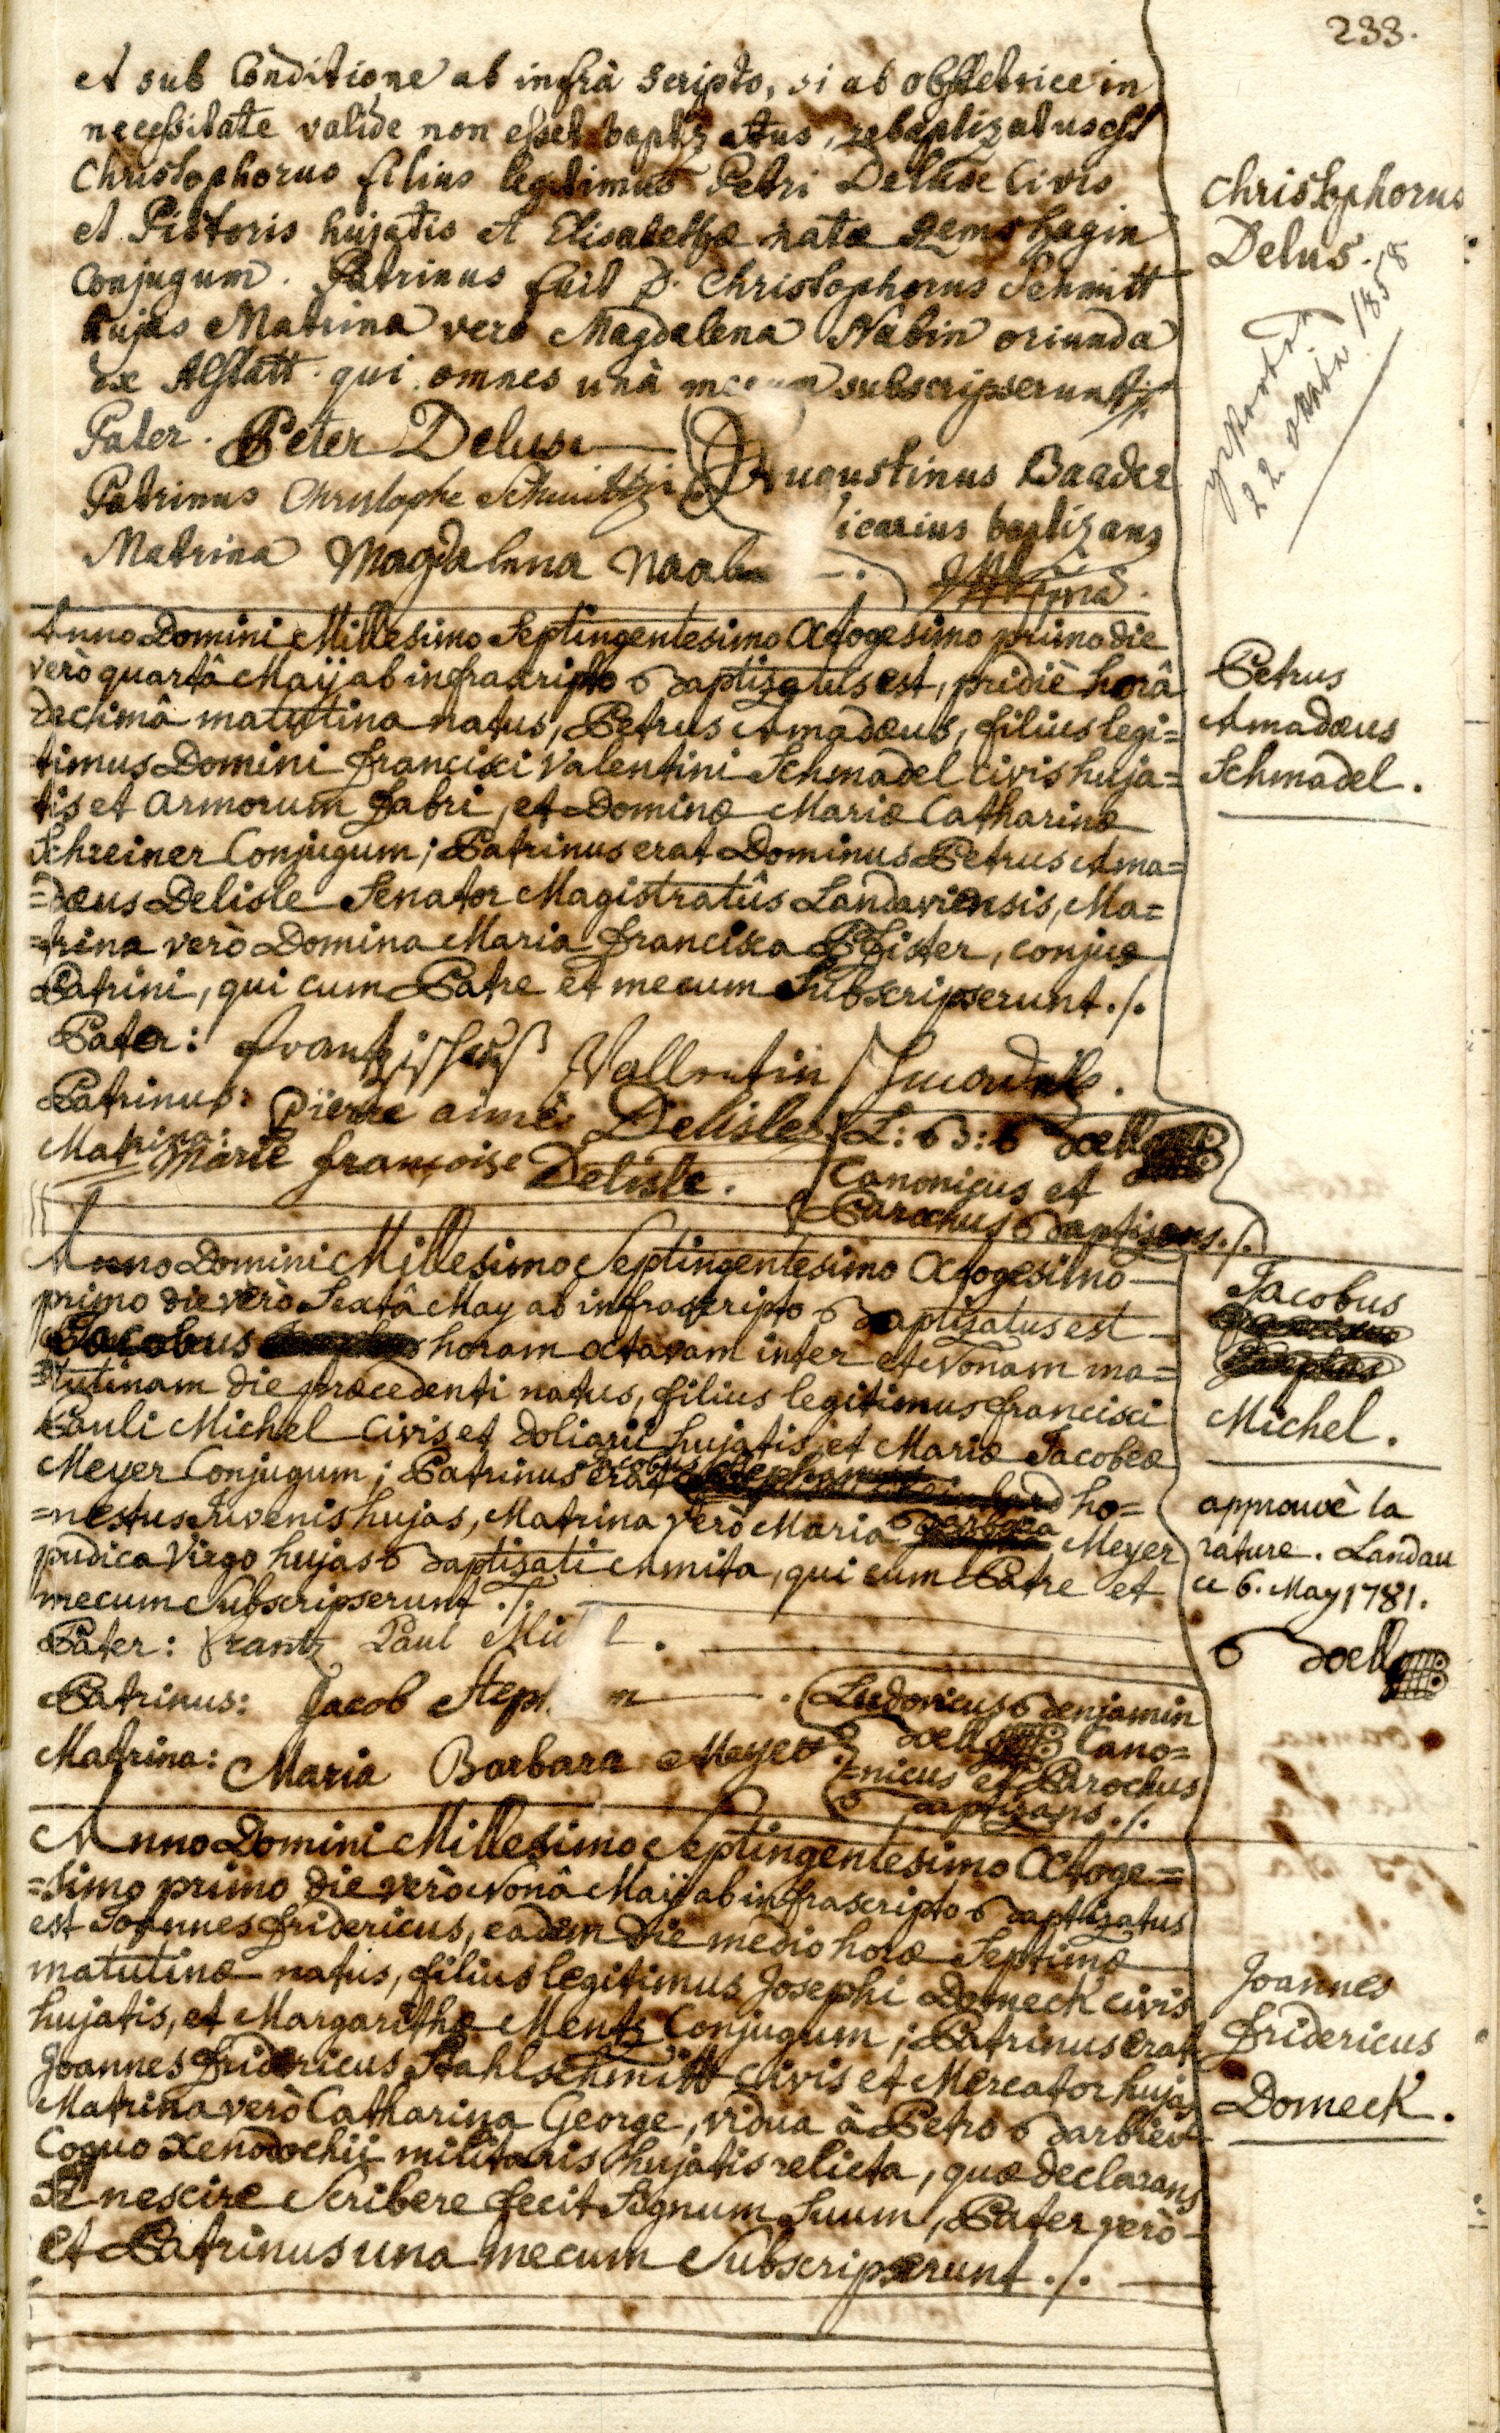 233.
et sub Conditione ab infrà scripto, si ab obstetrice in
necessitate valide non esset baptizatus, rebaptizatus est
Christophorus filius legitimus Petri Deluse Civis
et Pistoris hujatis et Elisabethæ natæ
Conjugum. Patrinus fuit D. Christophorus Schmitt
hujas Matrina vero Magdalena Nabin oriunda
ex Alstatt. qui omnes unà mecum subscripserunt ./.
Christophorus
Delus.
gestorben
22 1858
Pater. Peter Deluse
Patrinus Christophe Schmitt
Matrina Magdalena Naab
Augustinus Baader
icarius baptizans
Anno Domini Millesimo Septingentesimo Octogesimo primo die
verò quartâ Maij ab infrascripto Baptizatus est, pridiè horâ
decimâ matutina natus, Petrus Amadæus, filius legi=
timus Domini Francisci Valentini Schmadel civis huja=
tis et armorum fabri, et Dominæ Mariæ Catharinæ
Schreiner Conjugum; Patrinus erat Dominus Petrus Ama=
=dæus Delisle Senator Magistratûs Landaviensis, Ma=
=trina verò Domina Maria Francisca Pfister, conjux
Patrini, qui cum Patre et mecum Subscripserunt ./.
Petrus
Amadæus
Schmadel.
Pater: Vallentin
Patrinus: Pierre aimé Delisle
Matrina: Marie françoise Delisle.
L: B: Boell
Canonicus et
Parochus Baptizans ./.
Anno Domini Millesimo Septingentesimo Octogesimo
primo die verò Sextâ May ab infrascripto Baptizatus est
Jacobus horam octavam inter et Nonam ma=
=tutinam die præcedenti natus, filius legitimus Francisci
Pauli Michel Civis et doliarii hujatis, et Mariæ Jacobeæ
Meyer Conjugum; Patrinus erat Jacobus ho=
=nestus Juvenis hujas, Matrina verò Maria Barbara Meyer
pudica Virgo hujas Baptizati Amita, qui cum Patre et
mecum Subscripserunt ./.
Jacobus
Michel.
approuvè la
rature. Landau
ce 6. May 1781.
Boell
Pater: Frantz Paul
Patrinus: Jacob
Matrina: Maria Barbara Meyer
Ludovicus Benjamin
Boell Cano=
=nicus et Parochus
Baptizans ./.
Anno Domini Millesimo Septingentesimo Octoge=
=simo primo die verò Nonâ Maij ab infrascripto Baptizatus
est Joannes Fridericus, eadem die mediò horæ Septimæ
matutinæ natus, filius legitimus Josephi Domeck civis
hujatis, et Margarithæ Mentz Conjugum; Patrinus erat
Joannes Fridericus Stahlschmitt civis et Mercator hujas
Matrina verò Catharina George, vidua à Petro Barbiev
Coquo Xenodochii militaris hujatis relicta, quæ declarans
se nescire Scribere fecit Signum Suum, Pater verò
et Patrinus una mecum Subscripserunt ./.
Joannes
Fridericus
Domeck.